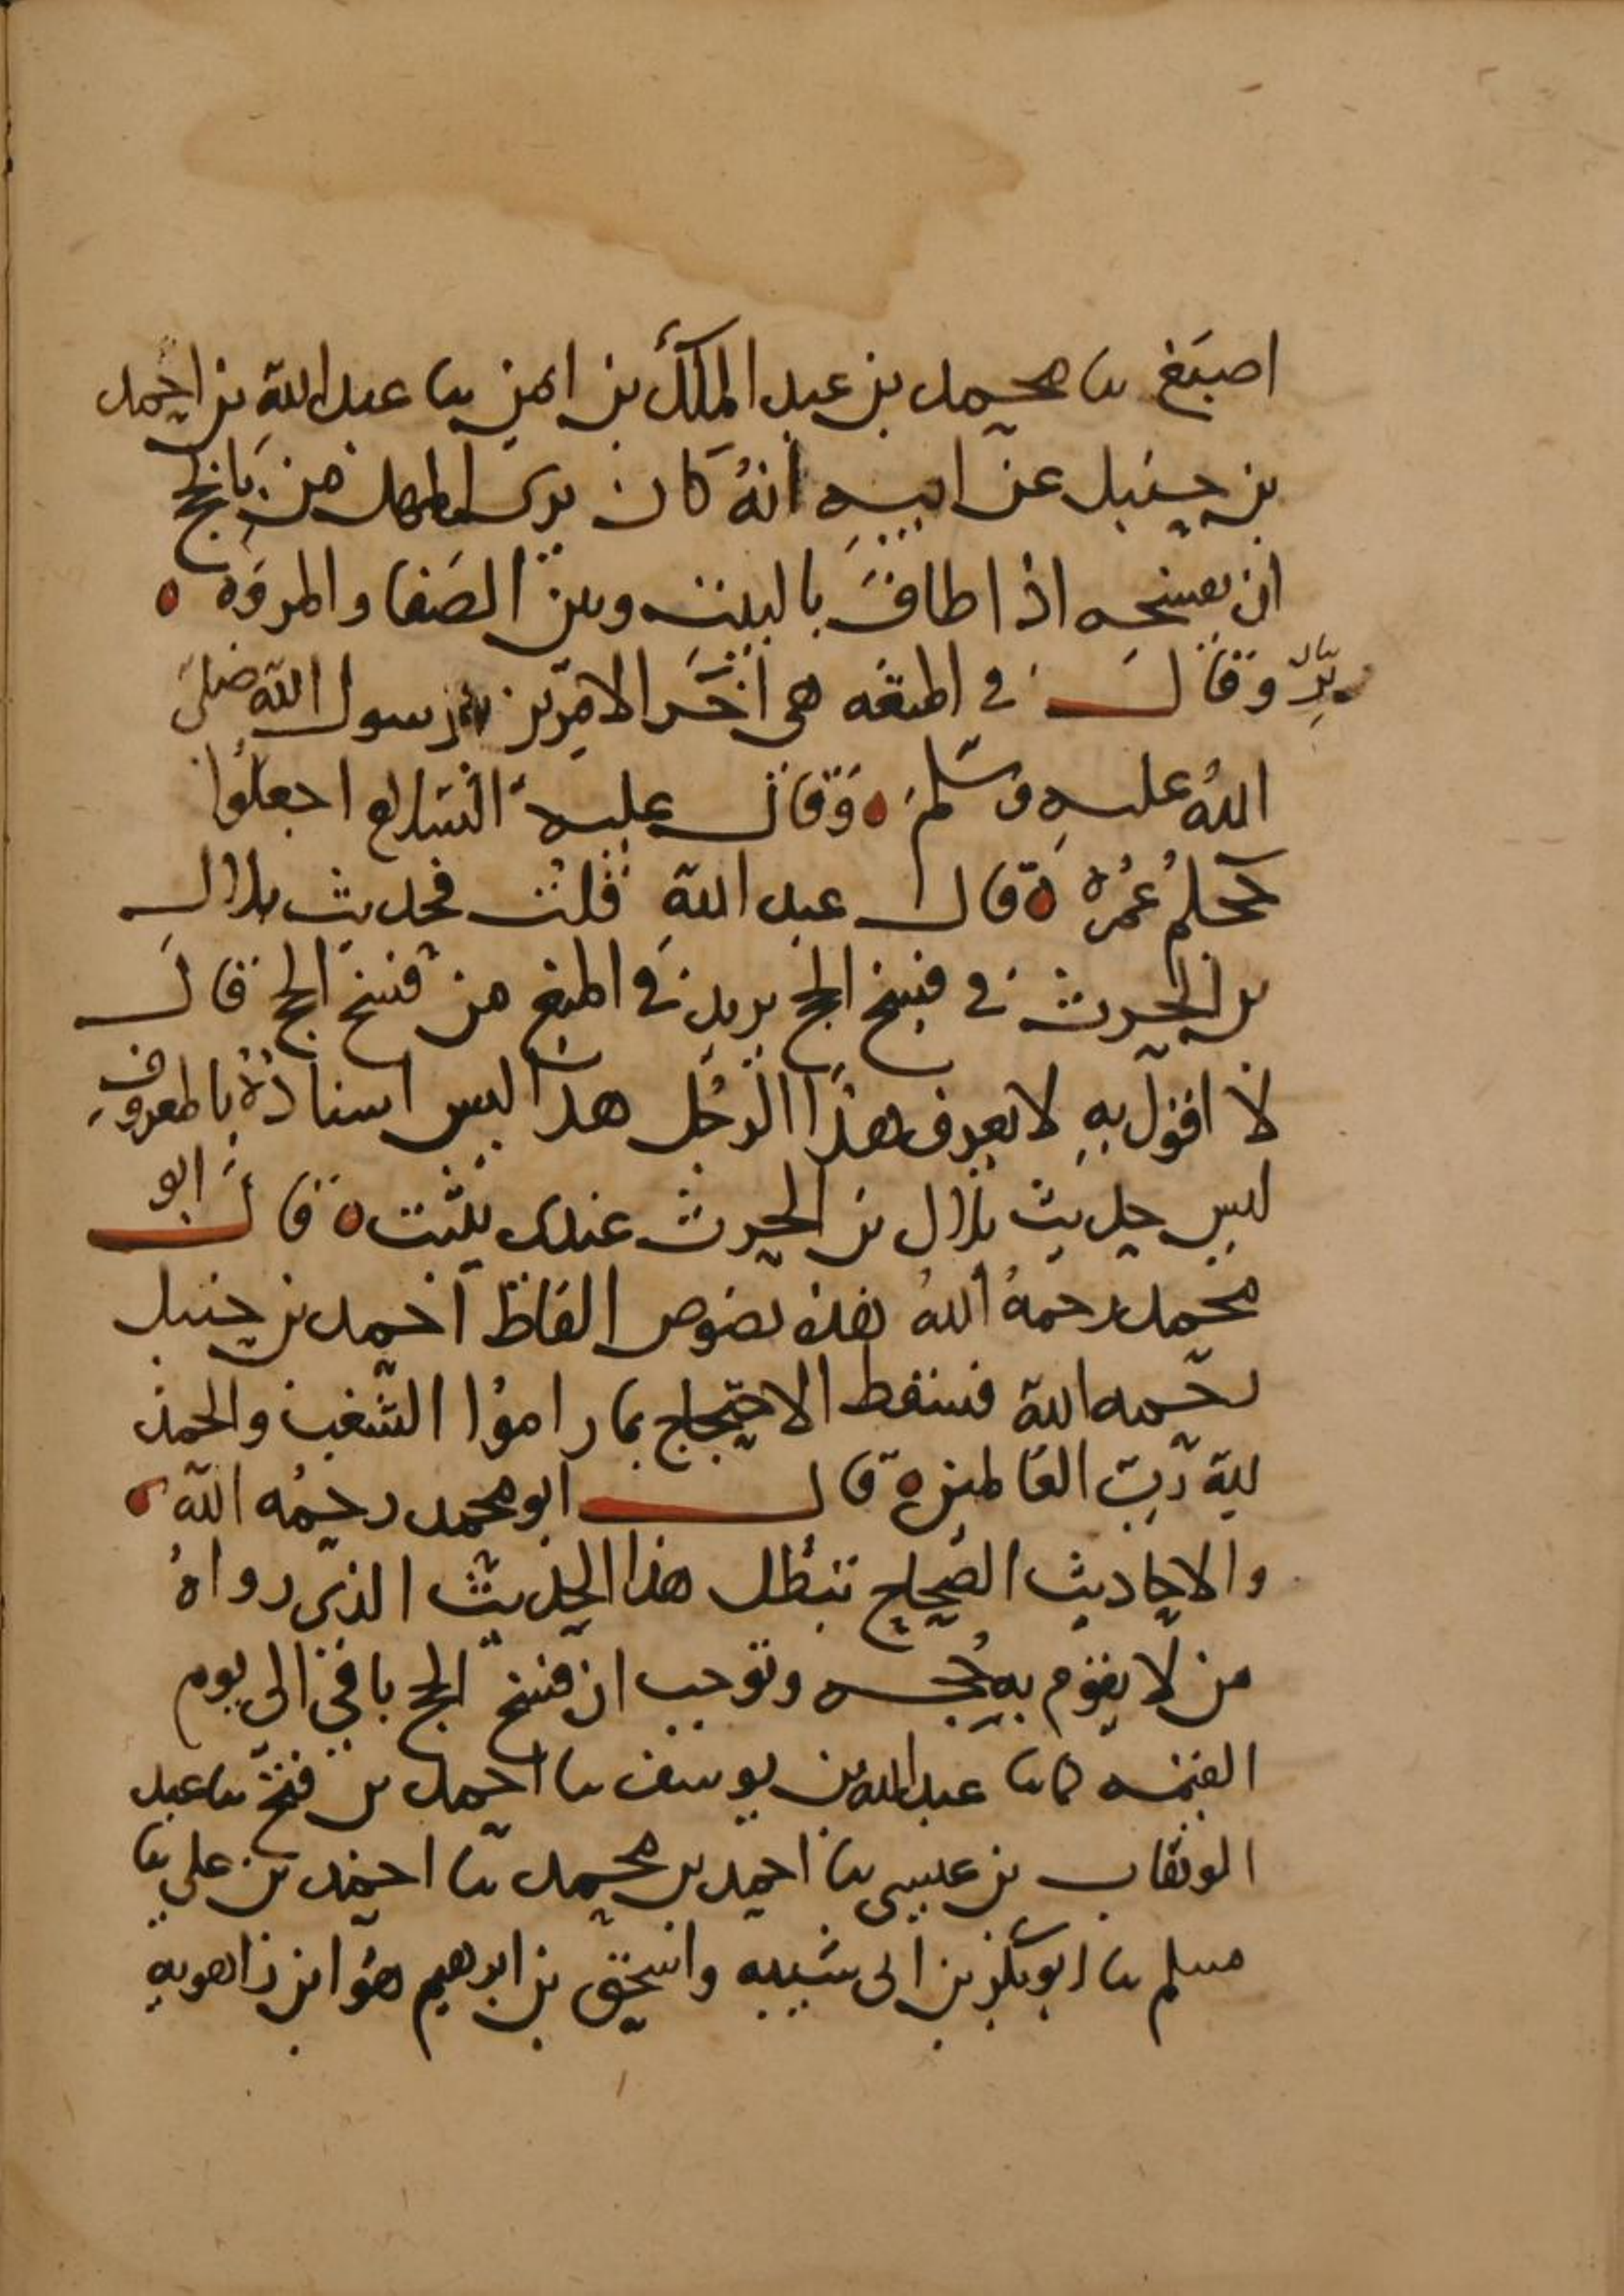 اصبغ نا محمد بن عبد الملك بن ايمن نا عبد الله بن احمد
بن حنبل عن ابيه انه كان يرى للمهل من بالحج
ان يفسخه اذا طاف بالبيت وبين الصفا والمروه ه
وقال في المتعه هي اخر الامرين من رسول الله صلى
الله عليه وسلم ه وقال عليه السلام اجعلوا
حجكم عمره ه قال عبد الله قلت فحديث بلال
بن الحرث في فسخ الحج يريد في المنع من فسخ الحج قال
لا اقول به لا يعرف هذا الرجل هذا ليس اسناده بالمعروف
ليس حديث بلال بن الحرث عندى يثبت ه قال ابو
محمد رحمه الله هذه نصوص الفاظ احمد بن حنبل
رحمه الله فسقط الاحتجاج بما راموا الشغب والحمد
لله رب العالمين ه قال ابو محمد رحمه الله ه
والاحاديث الصحاح تبطل هذا الحديث الذى رواه
من لا يقوم به حجه وتوجب ان فسخ الحج باقي الى يوم
القيمه كما نا عبد الله بن يوسف نا احمد بن فتح نا عبد
الوهاب بن عيسى نا احمد بن محمد نا احمد بن علي نا
مسلم نا ابو بكر بن ابى شيبه واسحق بن ابرهيم هو ابن راهويه